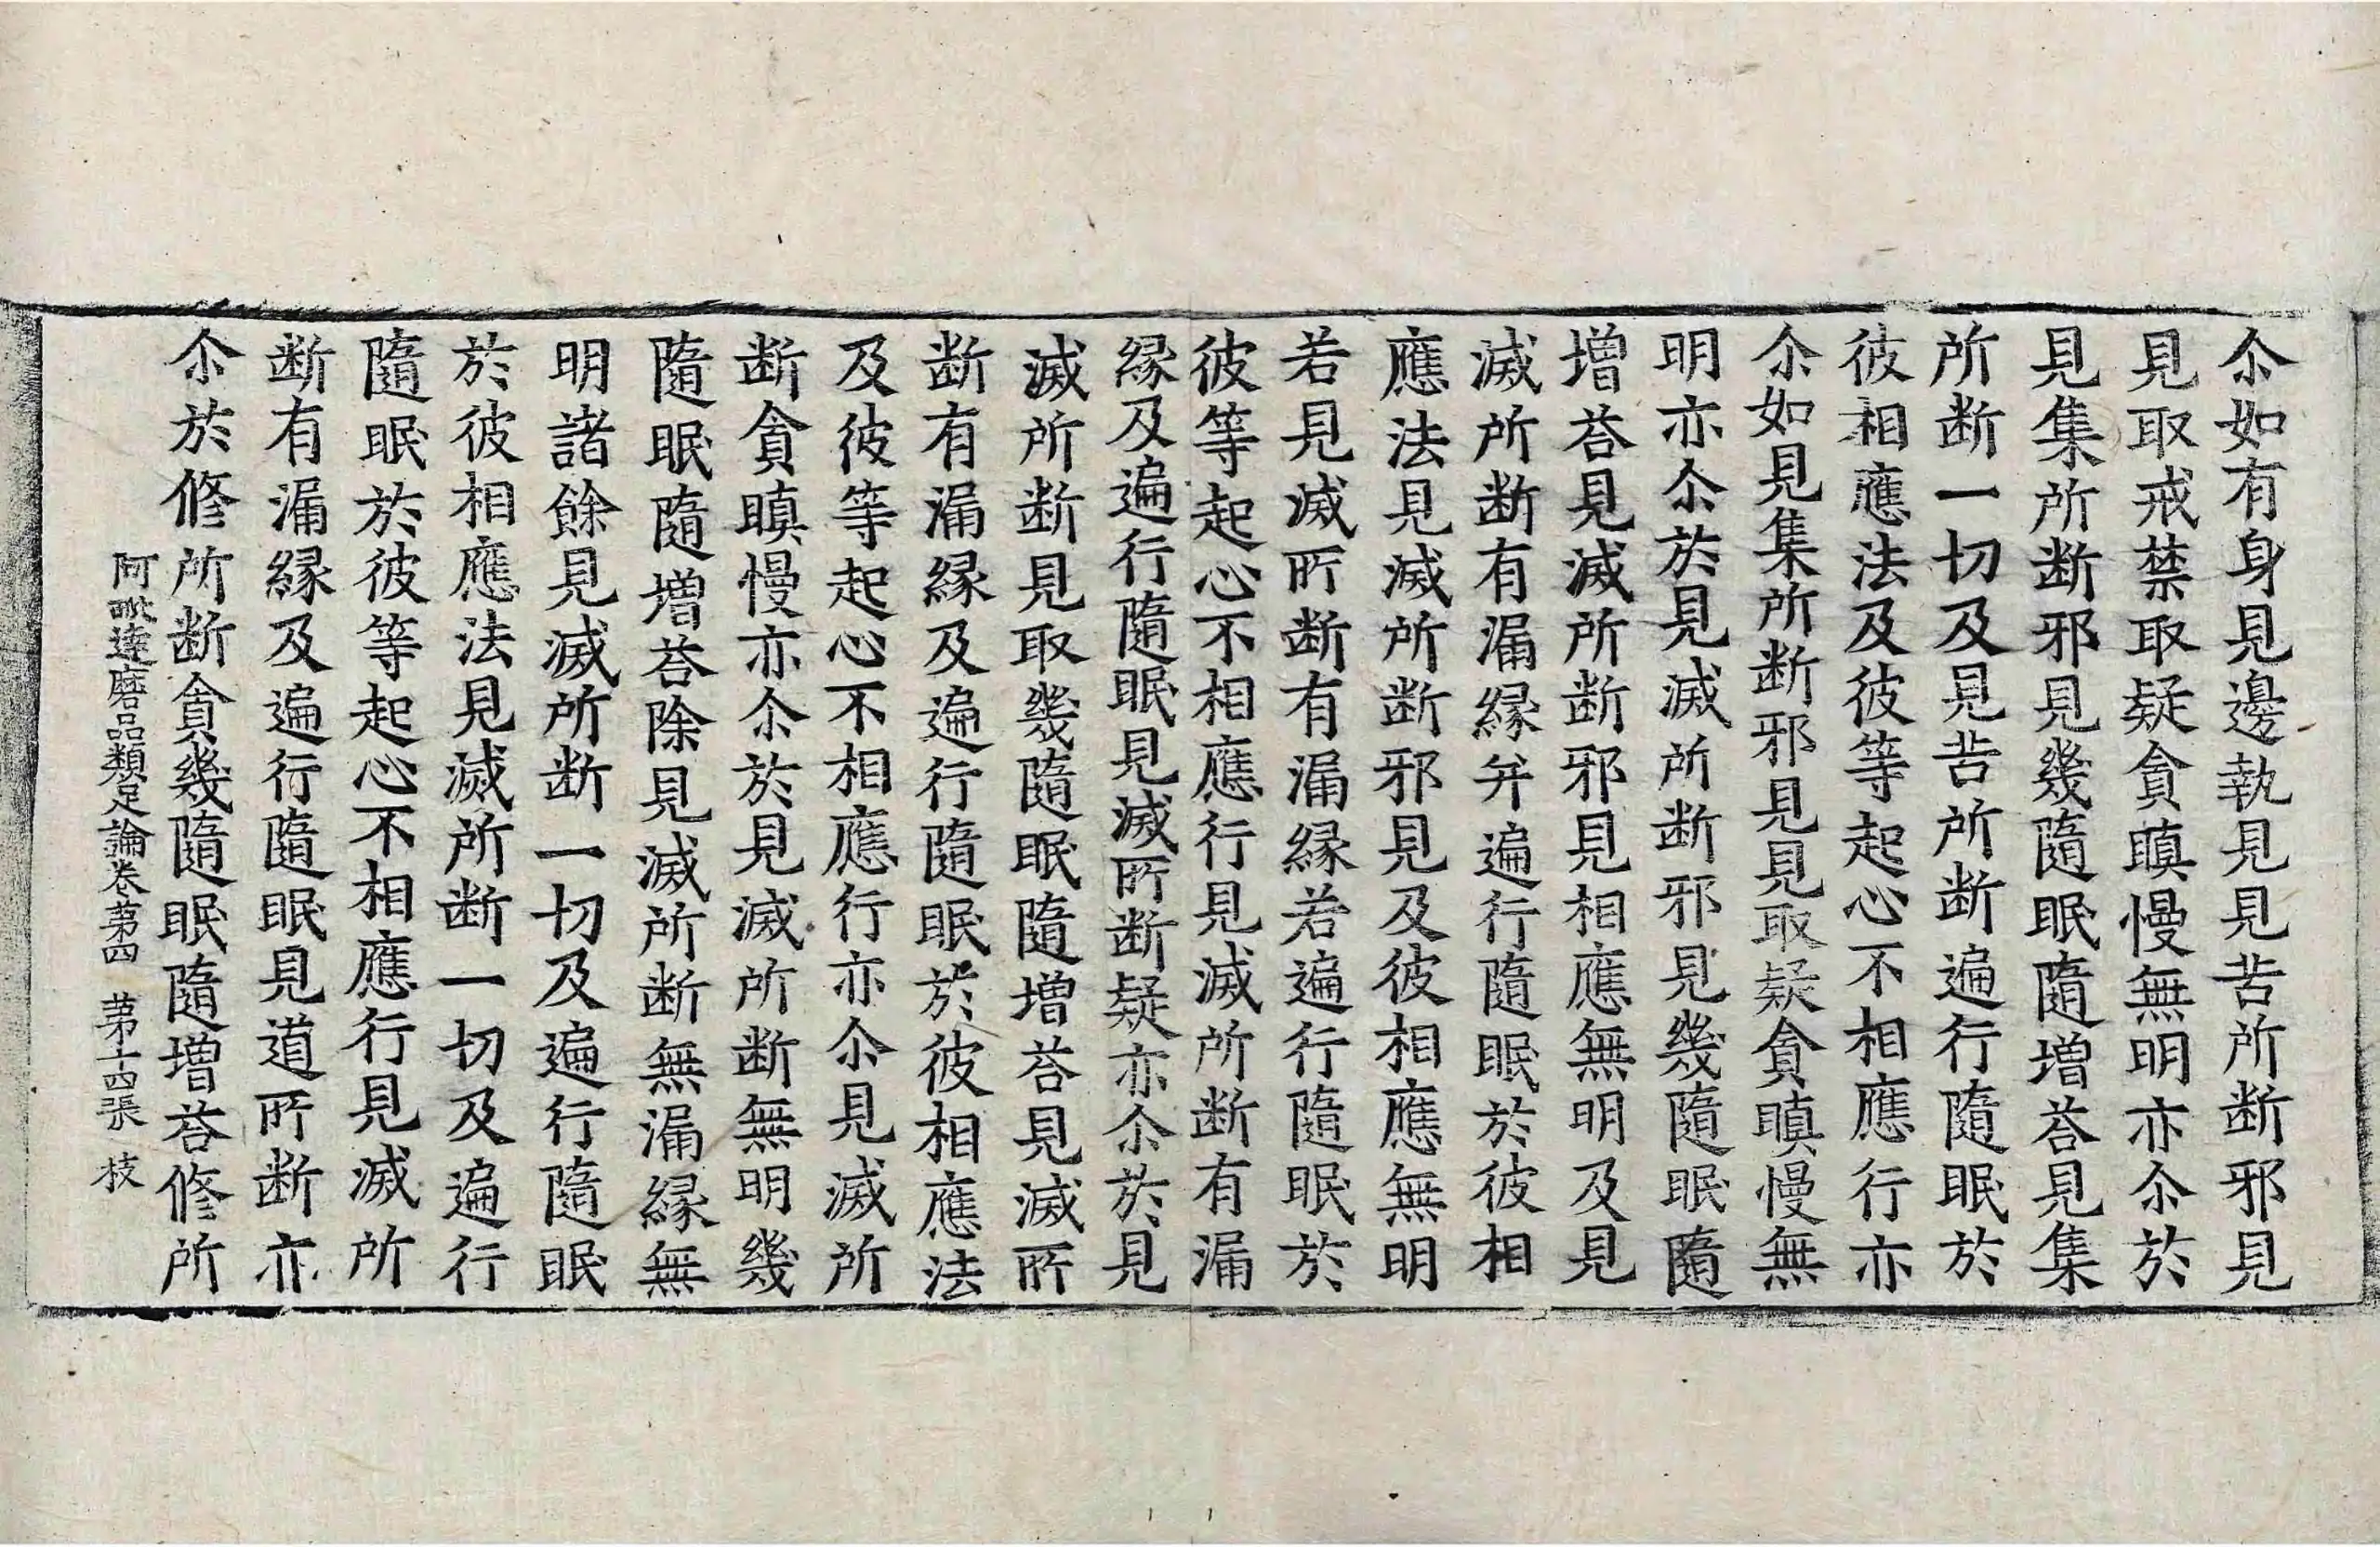 尒如有身見邊執見見苦所断邪見
見取戒禁取疑貪瞋慢無明亦尒於
見集所断邪見幾隨眠隨增荅見集
所断一切及見苦所断遍行隨眠於
彼相應法及彼等起心不相應行亦
尒如見集所断邪見見取疑貪瞋慢無
明亦尒於見滅所断邪見幾隨眠隨
增荅見滅所断邪見相應無明及見
滅所断有漏縁并遍行隨眠於彼相
應法見滅所断邪見及彼相應無明
若見滅所断有漏縁若遍行隨眠於
彼等起心不相應行見滅所断有漏
縁及遍行隨眠見滅所断疑亦尒於見
滅所断見取幾隨眠隨增荅見滅所
断有漏縁及遍行隨眠於彼相應法
及彼等起心不相應行亦尒見滅所
断貪瞋慢亦尒於見滅所断無明幾
隨眠隨增荅除見滅所断無漏縁無
明諸餘見滅所断一切及遍行隨眠
於彼相應法見滅所断一切及遍行
隨眠於彼等起心不相應行見滅所
断有漏縁及遍行隨眠見道所断亦
尒於修所断貪幾隨眠隨增荅修所
阿毗達磨品類足論卷苐四 苐十四張 枝